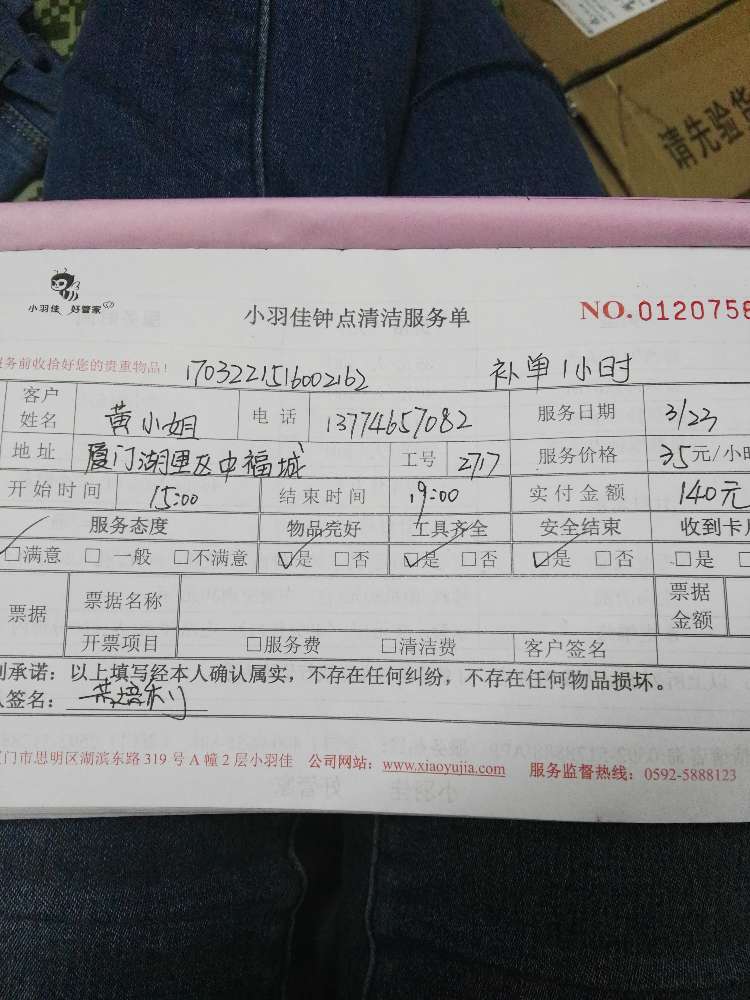 请先验货
小羽佳 好管家
小羽佳钟点清洁服务单
NO.0120758
务前收拾好您的贵重物品！
1703221516002162
补单1小时
客户姓名 黄小姐 电话 13774657082 服务日期 3/23
地址 厦门湖里区中福城 工号 2717 服务价格 35元/小时
开始时间 15:00 结束时间 19:00 实付金额 140元
服务态度 物品完好 工具齐全 安全结束 收到卡
☑满意 □一般 □不满意 ☑是 □否 ☑是 □否 ☑是 □否 □是
票据 票据名称 票据金额
开票项目 □服务费 □清洁费 客户签名
承诺：以上填写经本人确认属实，不存在任何纠纷，不存在任何物品损坏。
签名：
门市思明区湖滨东路319号A幢2层小羽佳 公司网站：www.xiaoyujia.com 服务监督热线：0592-5888123